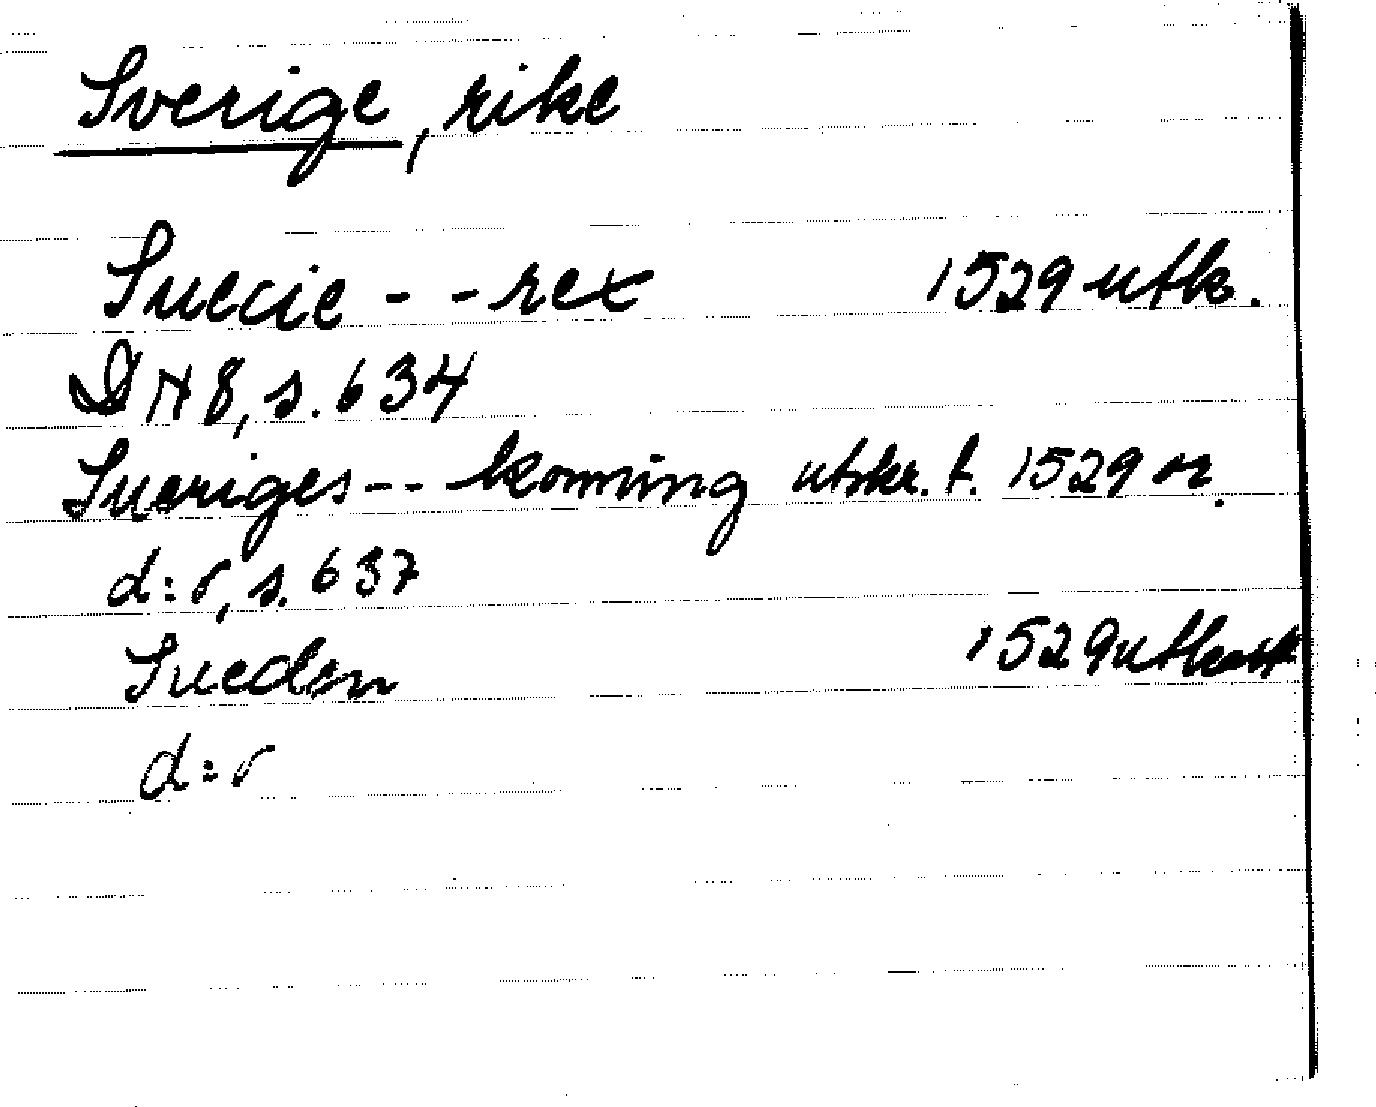 Sverige, rike
Suecie - - rex 1529 utk.
DN 8, s. 634
Sueriges - - konning utskr. f. 1529 or.
d:o, s. 637
Sueden 1529 utkast
d:o